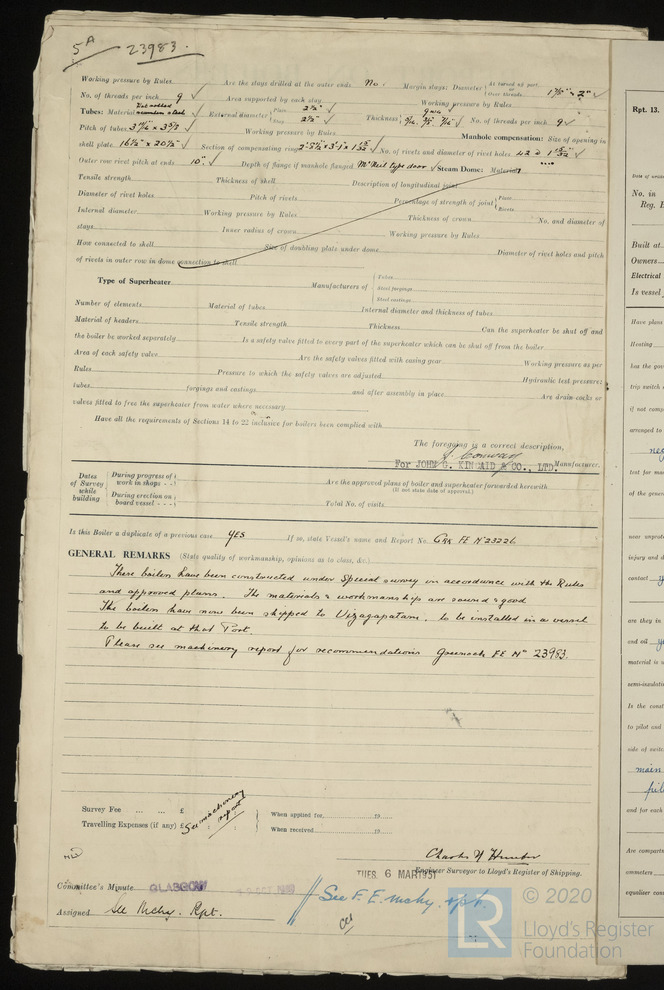 5A 23983.
Working pressure by Rules Are the stays drilled at the outer ends No. Margin stays: Diameter { At turned off part, or Over threads 1 7/8" & 2"
No. of threads per inch 9 Area supported by each stay Working pressure by Rules
Tubes: Material External diameter { Plain 2½" Stay 2½" Thickness { No. of threads per inch 9
Pitch of tubes Working pressure by Rules Manhole compensation: Size of opening in
shell plate 16½" x 20½" Section of compensating ring No. of rivets and diameter of rivet holes 42 @
Outer row rivet pitch at ends 10" Depth of flange if manhole flanged McNeil type door Steam Dome: Material
Tensile strength Thickness of shell Description of longitudinal joint
Diameter of rivet holes Pitch of rivets Percentage of strength of joint { Plate Rivets
Internal diameter Working pressure by Rules Thickness of crown No. and diameter of
stays Inner radius of crown Working pressure by Rules
How connected to shell Size of doubling plate under dome Diameter of rivet holes and pitch
of rivets in outer row in dome connection to shell
Type of Superheater Manufacturers of { Tubes Steel forgings Steel castings
Number of elements Material of tubes Internal diameter and thickness of tubes
Material of headers Tensile strength Thickness Can the superheater be shut off and
the boiler be worked separately Is a safety valve fitted to every part of the superheater which can be shut off from the boiler
Area of each safety valve Are the safety valves fitted with easing gear Working pressure as per
Rules Pressure to which the safety valves are adjusted Hydraulic test pressure:
tubes forgings and castings and after assembly in place Are drain cocks or
valves fitted to free the superheater from water where necessary
Have all the requirements of Sections 14 to 22 inclusive for boilers been complied with
The foregoing is a correct description,
For JOHN G. KINCAID & CO., LTD. Manufacturer.
Dates of Survey while building { During progress of work in shops - - During erection on board vessel - - -
Are the approved plans of boiler and superheater forwarded herewith (If not state date of approval.)
Total No. of visits
Is this Boiler a duplicate of a previous case YES If so, state Vessel's name and Report No. Grk FE No 23226
GENERAL REMARKS (State quality of workmanship, opinions as to class, &c.)
These boilers have been constructed under Special survey in accordance with the Rules
and approved plans. The materials & workmanship are sound & good
The boilers have now been shipped to Vizagapatam, to be installed in a vessel
to be built at that Port.
Please see machinery report for recommendations Greenock FE No 23983.
Survey Fee ... ... £ See machinery report When applied for, 19
Travelling Expenses (if any) £ When received, 19
Engineer Surveyor to Lloyd's Register of Shipping.
TUES. 6 MAR 1951
Committee's Minute GLASGOW
See F. E. mchy. rpt.
Assigned See Mchy. Rpt.
Rpt. 13.
No. in
Reg. B
Built at
Owners
Electrical
Is vessel
Have plans
Heating
has the gov
trip switch
if not comp
arranged to
neg
test for ma
of the gener
near unprote
injury and d
contact
are they in
and oil
material is u
semi-insulati
Is the const
to pilot and
side of switc
main
and for each
Are compart
ommeters
equaliser con
© 2020
LR
Lloyd's Register
Foundation